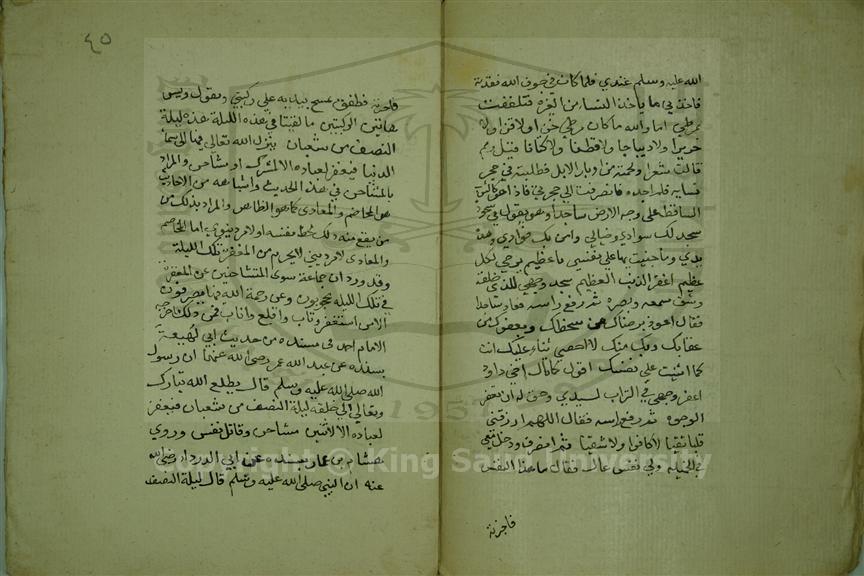 الله عليه وسلم عندي فلما كان في جوف الله فقدته
فاخذني ما ياخذ النسا من الغيره فتلففت
بمرطي اما والله ما كان مرطي خز ولا قز ولا
حريرا ولا ديباجا ولا قطنا ولا كتانا قيل مم
قالت شعرا ولحمته من اوبار الابل فطلبته في حجر
نسايه فلم اجده فانصرفت الي حجرتي فاذا هو كالثوب
الساقط علي وجه الارض ساجدا وهو يقول في سجوده
سجد لك سوادي وخيالي وامن بك فوادي وهذه
يدي وما جنيت بها علي نفسي يا عظيم يرجي لكل
عظيم اغفر الذنب العظيم سجد وجهي للذي خلقه
وشق سمعه وبصره ثم رفع راسه فعاد ساجدا
فقال اعوذ برضاك من سخطك وبعفوك من
عقابك وبك منك لا احصي ثناء عليك انت
كما اثنيت علي نفسك اقول كما قال اخي داود
اعفر وجهي في التراب لسيدي وحق له ان يعفر
الوجوه ثم رفع راسه فقال اللهم ارزقني
قلبا نقيا لا كافرا ولا شقيا ثم انصرف ودخل معي
في الخميلة ولي نفس عال فقال ما هذا النفس
فاخبرته
٤٥
فاخبرته فطفق يمسح بيديه علي ركبتي ويقول ويس
هاتين الركبتين ما لقيتا في هذه الليلة هذه ليلة
النصف من شعبان ينزل الله تعالي فيها الي سما
الدنيا فيغفر لعباده الا المشرك او مشاحن والمراد
بالمشاحن في هذا الحديث واشباهه من الاحاديث
هو المخاصم والمعادي كما هو الظاهر والمراد بذلك من
من يقع منه ذلك لحظ نفسه لا لامر ديني اما المخاصم
والمعادي لامر ديني لا يحرم من المغفرة تلك الليلة
وقد ورد ان جماعة سوي المتشاحنين عن المغفرة
في تلك الليله محجوبون وعن رحمة الله فيها مصرفون
الا من استغفر وتاب واقلع واناب فمن ذلك ما خرجه
الامام احمد في مسنده من حديث ابي لهيعة
بسنده عن عبد الله عمر رضي الله عنهما ان رسول
الله صلي الله عليه وسلم قال يطلع الله تبارك
وتعالي الي خلقه ليلة النصف من شعبان فيغفر
لعباده الا لاثنين مشاحن وقاتل نفس وروي
هشام بن عمار بسنده عن ابي الدرداء رضي الله
عنه ان النبي صلي الله عليه وسلم قال ليلة النصف
1957
Copyright © King Saud University